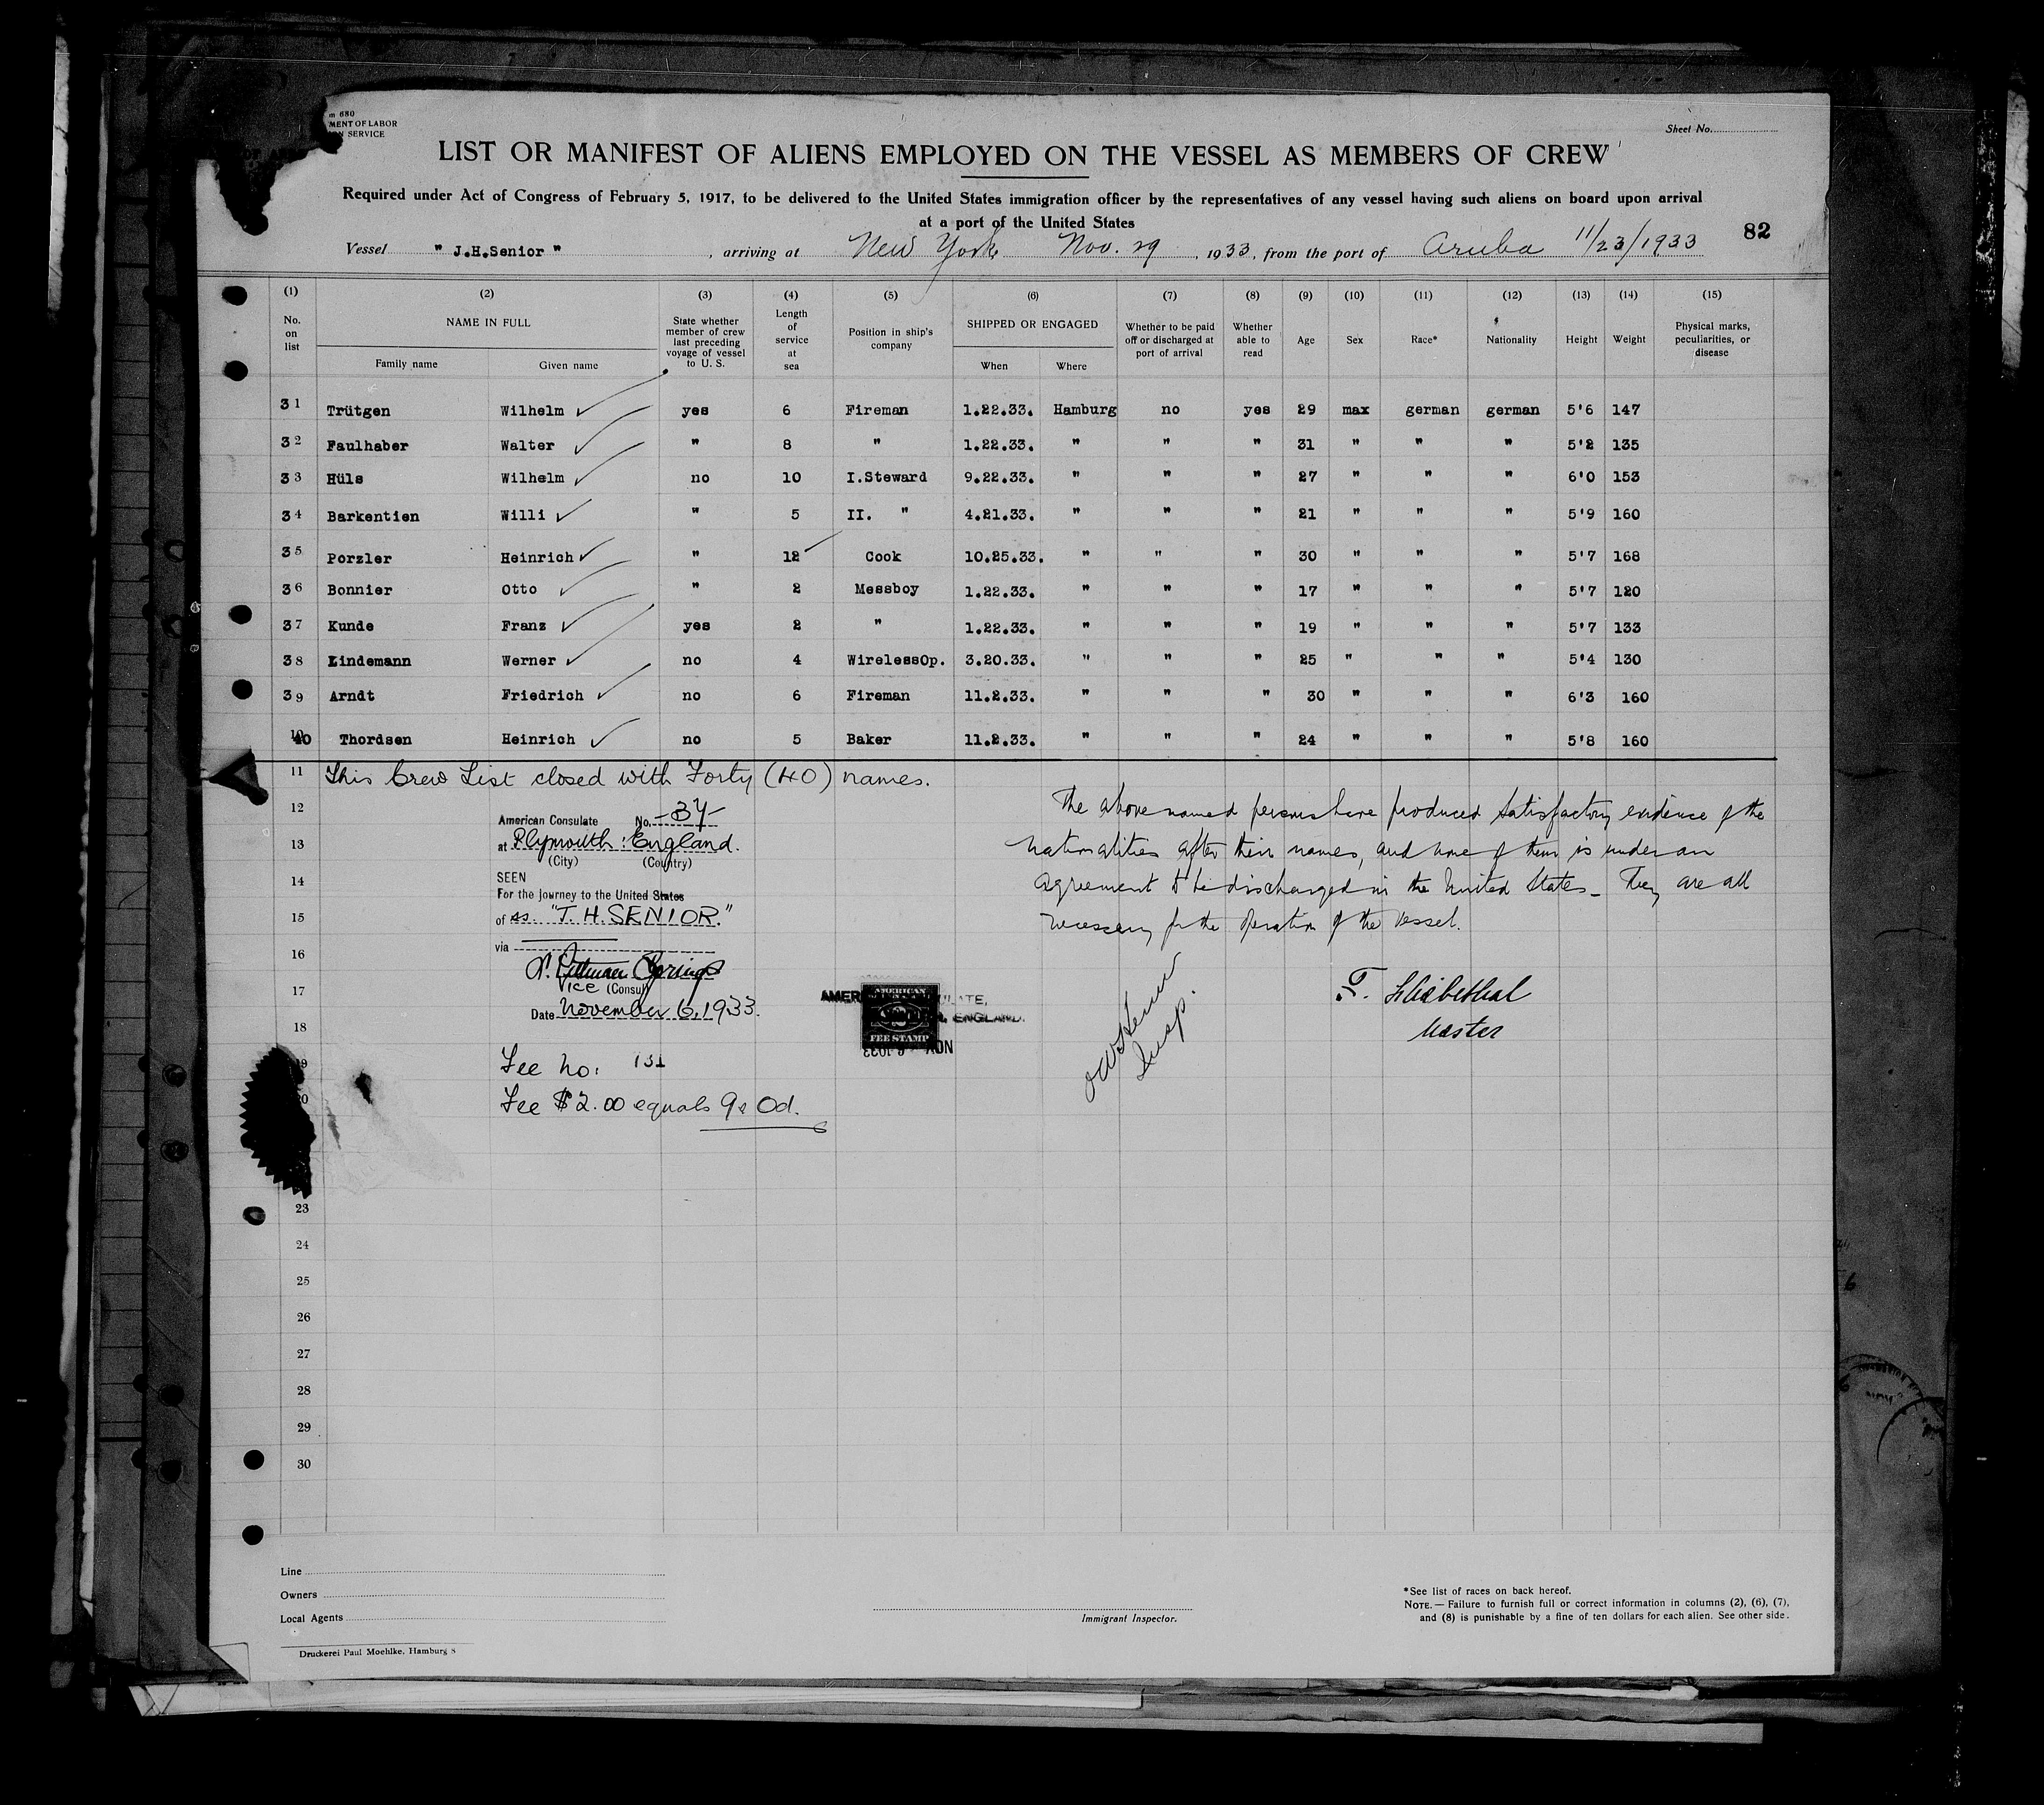 m 680
MENT OF LABOR
SERVICE
Sheet No.
LIST OR MANIFEST OF ALIENS EMPLOYED ON THE VESSEL AS MEMBERS OF CREW
Required under Act of Congress of February 5, 1917, to be delivered to the United States immigration officer by the representatives of any vessel having such aliens on board upon arrival
at a port of the United States
82
Vessel " J.H.Senior " , arriving at New York Nov. 29 , 1933, from the port of Aruba 11/23/1933
(1) (2) (3) (4) (5) (6) (7) (8) (9) (10) (11) (12) (13) (14) (15)
No. on list NAME IN FULL Family name Given name State whether member of crew last preceding voyage of vessel to U. S. Length of service at sea Position in ship's company SHIPPED OR ENGAGED When Where Whether to be paid off or discharged at port of arrival Whether able to read Age Sex Race* Nationality Height Weight Physical marks, peculiarities, or disease
31 Trütgen Wilhelm yes 6 Fireman 1.22.33. Hamburg no yes 29 max german german 5'6 147
32 Faulhaber Walter " 8 " 1.22.33. " " " 31 " " " 5'2 135
33 Hüls Wilhelm no 10 I.Steward 9.22.33. " " " 27 " " " 6'0 153
34 Barkentien Willi " 5 II. " 4.21.33. " " " 21 " " " 5'9 160
35 Porzler Heinrich " 12 Cook 10.25.33. " " " 30 " " " 5'7 168
36 Bonnier Otto " 2 Messboy 1.22.33. " " " 17 " " " 5'7 120
37 Kunde Franz yes 2 " 1.22.33. " " " 19 " " " 5'7 133
38 Lindemann Werner no 4 WirelessOp. 3.20.33. " " " 25 " " " 5'4 130
39 Arndt Friedrich no 6 Fireman 11.2.33. " " " 30 " " " 6'3 160
40 Thordsen Heinrich no 5 Baker 11.2.33. " " " 24 " " " 5'8 160
11 This Crew List closed with Forty (40) names.
12
American Consulate No. -37-
13
at Plymouth : England.
(City) (Country)
14
SEEN
For the journey to the United States
15
of ss. "J.H. SENIOR."
16
via
17
Vice (Consul)
Date November 6, 1933.
18
The above named persons have produced satisfactory evidence of the
nationalities after their names, and none of them is under an
agreement to be discharged in the United States - They are all
necessary for the operation of the vessel.
Master
Insp.
AMERICAN
FEE STAMP
ENGLAND.
NOV 6 1933
Fee No. 131
Fee $2.00 equals 9s 0d.
23
24
25
26
27
28
29
30
Line
Owners
Local Agents
Immigrant Inspector.
*See list of races on back hereof.
NOTE. — Failure to furnish full or correct information in columns (2), (6), (7),
and (8) is punishable by a fine of ten dollars for each alien. See other side.
Druckerei Paul Moehlke, Hamburg 8